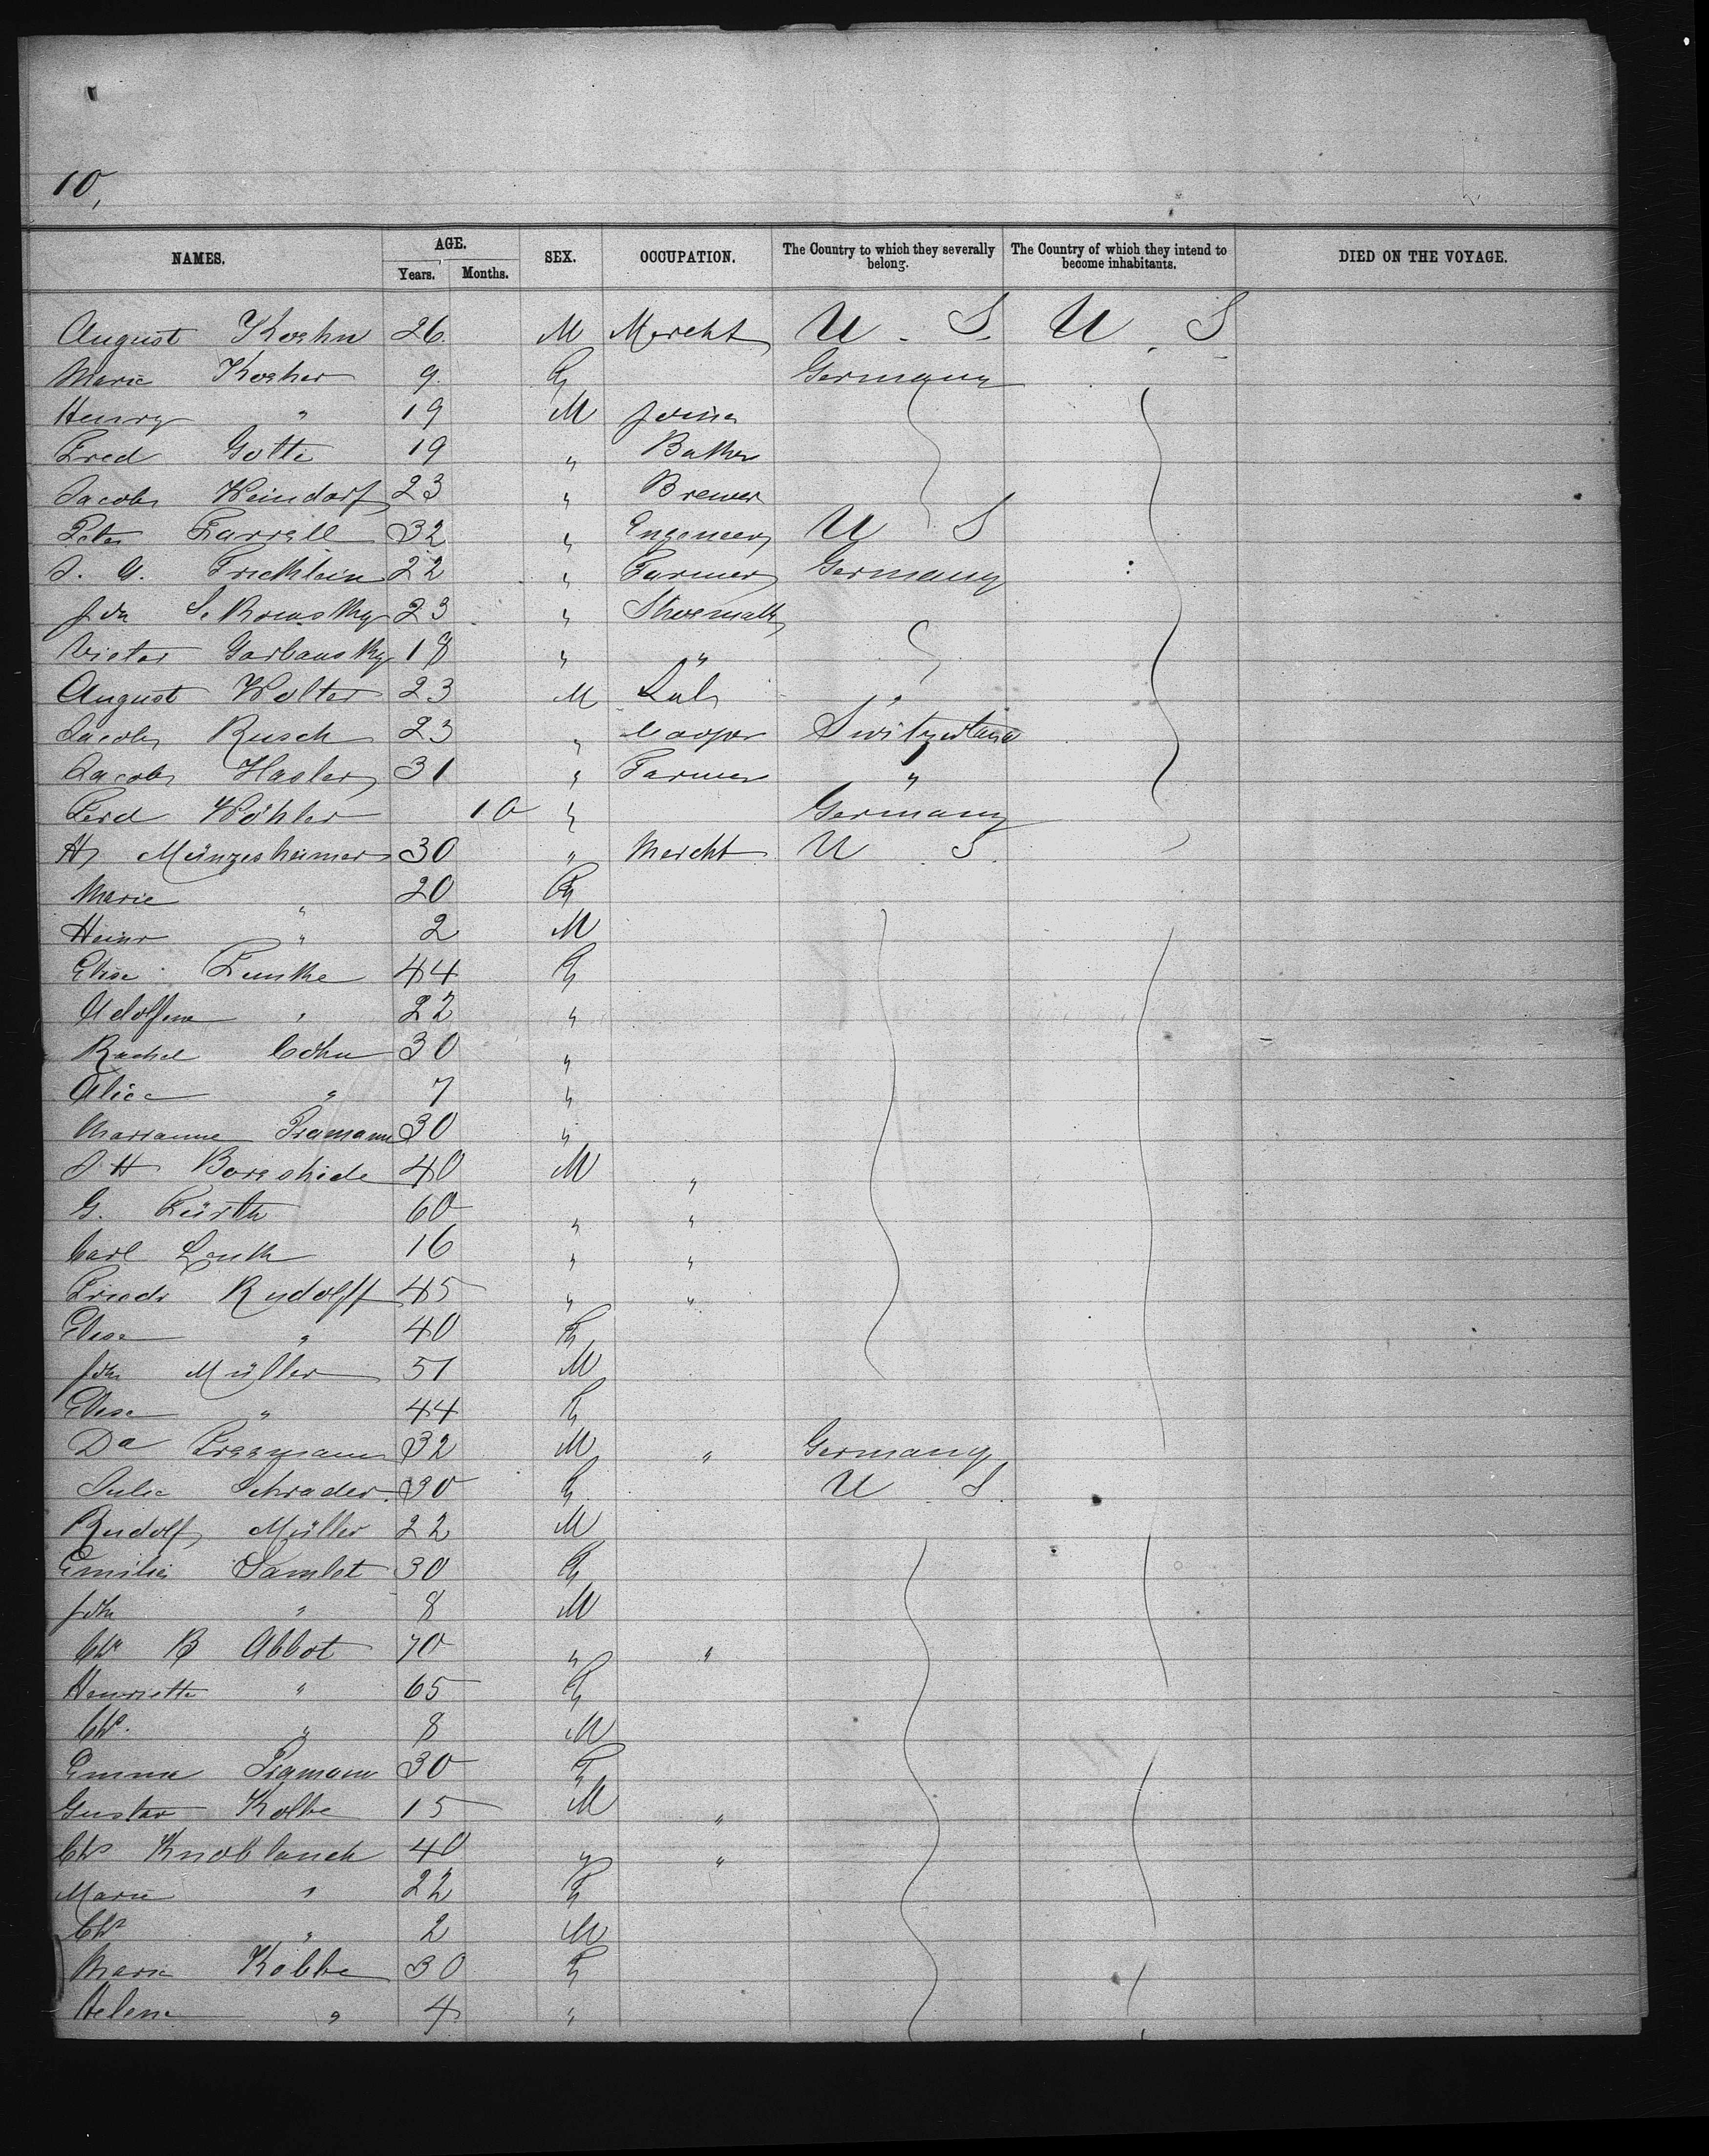 10,
NAMES. AGE. SEX. OCCUPATION. The Country to which they severally belong. The Country of which they intend to become inhabitants. DIED ON THE VOYAGE.
Years. Months.
August Koehn 26 M Mercht U. S. U. S
Marie Kocher 9 F Germany
Henry " 19 M
Fred Gotte 19 " Baker
Jacob Weindorf 23 " Brewer
Peter Farrell 32 " Engeneer U S
22 " Farmer Germany
23 " Shoemak
Victor 18 " "
August Wolter 23 M Lab "
Jacob Rusch 23 " Cooper Switzerland
Jacob Hasler 31 " Farmer "
Ferd Wöhler 10 " Germany
H Münzesheimer 30 " Mercht U S.
Marie " 20 F
Heinr " 2 M
Elise Funke 44 F
" 22 "
Rachel Cohn 30 "
Alice " 7 "
Marianne 30 "
J H 40 M "
G. Fürth 60 " "
Carl 16 " "
Friedr Rudolff 45 " "
Elise " 40 F
Joh Müller 51 M
Elise " 44 F
32 M " Germany
Julie Schrader 30 F U S.
Rudolf Müller 22 M
Emilie Samlet 30 F
Joh " 8 M
Chs B Abbot 70 " "
Henriette " 65 F
Chs. " 8 M
Emma 30 F
Gustav Kolbe 15 M "
Chs Knoblauch 40 " "
Marie " 22 F
Chs " 2 M
Marie Kobbe 30 F
Helene " 4 "